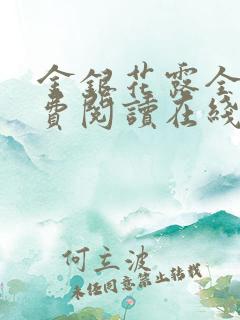 金銀花露全
費閱讀在綫
何立波
未经同意禁止转载